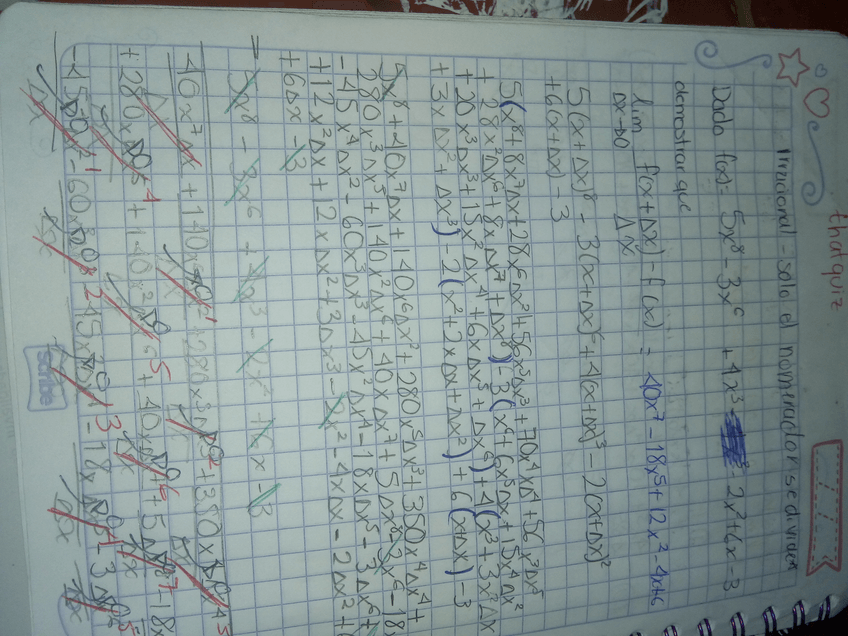 thatquiz
irracional - solo el nomerador se divide
Dada f(x)= 5x⁸ - 3x⁶ + 4x³ - 2x² + 6x - 3
demostrar que
lim f(x+Δx) - f(x) = 40x⁷ - 18x⁵ + 12x² - 4x + 6
Δx→0 Δx
5(x+Δx)⁸ - 3(x+Δx)⁶ + 4(x+Δx)³ - 2(x+Δx)²
+6(x+Δx) - 3
5(x⁸+8x⁷Δx+28x⁶Δx²+56x⁵Δx³+70x⁴Δx⁴+56x³Δx⁵
+28x²Δx⁶+8xΔx⁷+Δx⁸)-3(x⁶+6x⁵Δx+15x⁴Δx²
+20x³Δx³+15x²Δx⁴+6xΔx⁵+Δx⁶)+4(x³+3x²Δx
+3xΔx²+Δx³)-2(x²+2xΔx+Δx²)+6(x+Δx)-3
5x⁸+40x⁷Δx+140x⁶Δx²+280x⁵Δx³+350x⁴Δx⁴+
280x³Δx⁵+140x²Δx⁶+40xΔx⁷+5Δx⁸-3x⁶-18x
-45x⁴Δx²-60x³Δx³-45x²Δx⁴-18xΔx⁵-3Δx⁶+
+12x²Δx+12xΔx²+3Δx³-2x²-4xΔx-2Δx²+
+6Δx-3
= 5x⁸ - 3x⁶ + 4x³ - 2x² + 6x - 3
40x⁷Δx + 140x + 280x + 350x
+280x + 140x² + 40x + 5 - 18x
-45 - 60x³ - 45x - 18x - 3
scribe